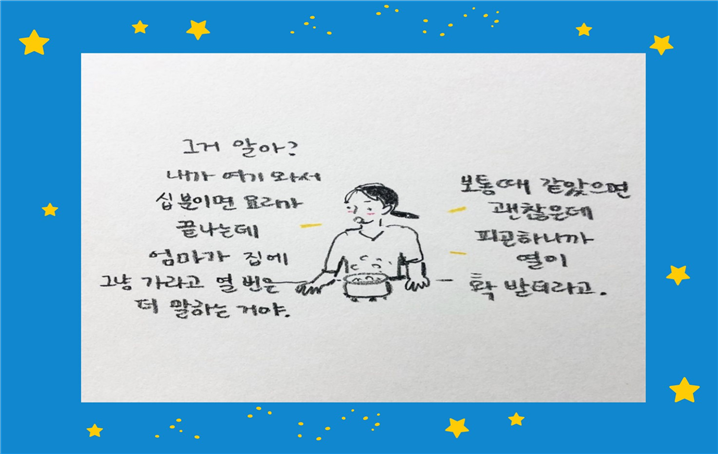 그거 알아?
내가 여기 와서
십분이면 요리가
끝나는데
엄마가 집에
그냥 가라고 열 번은
더 말하는 거야.
보통때 같았으면
괜찮은데
피곤하니까
열이
확 받더라고.